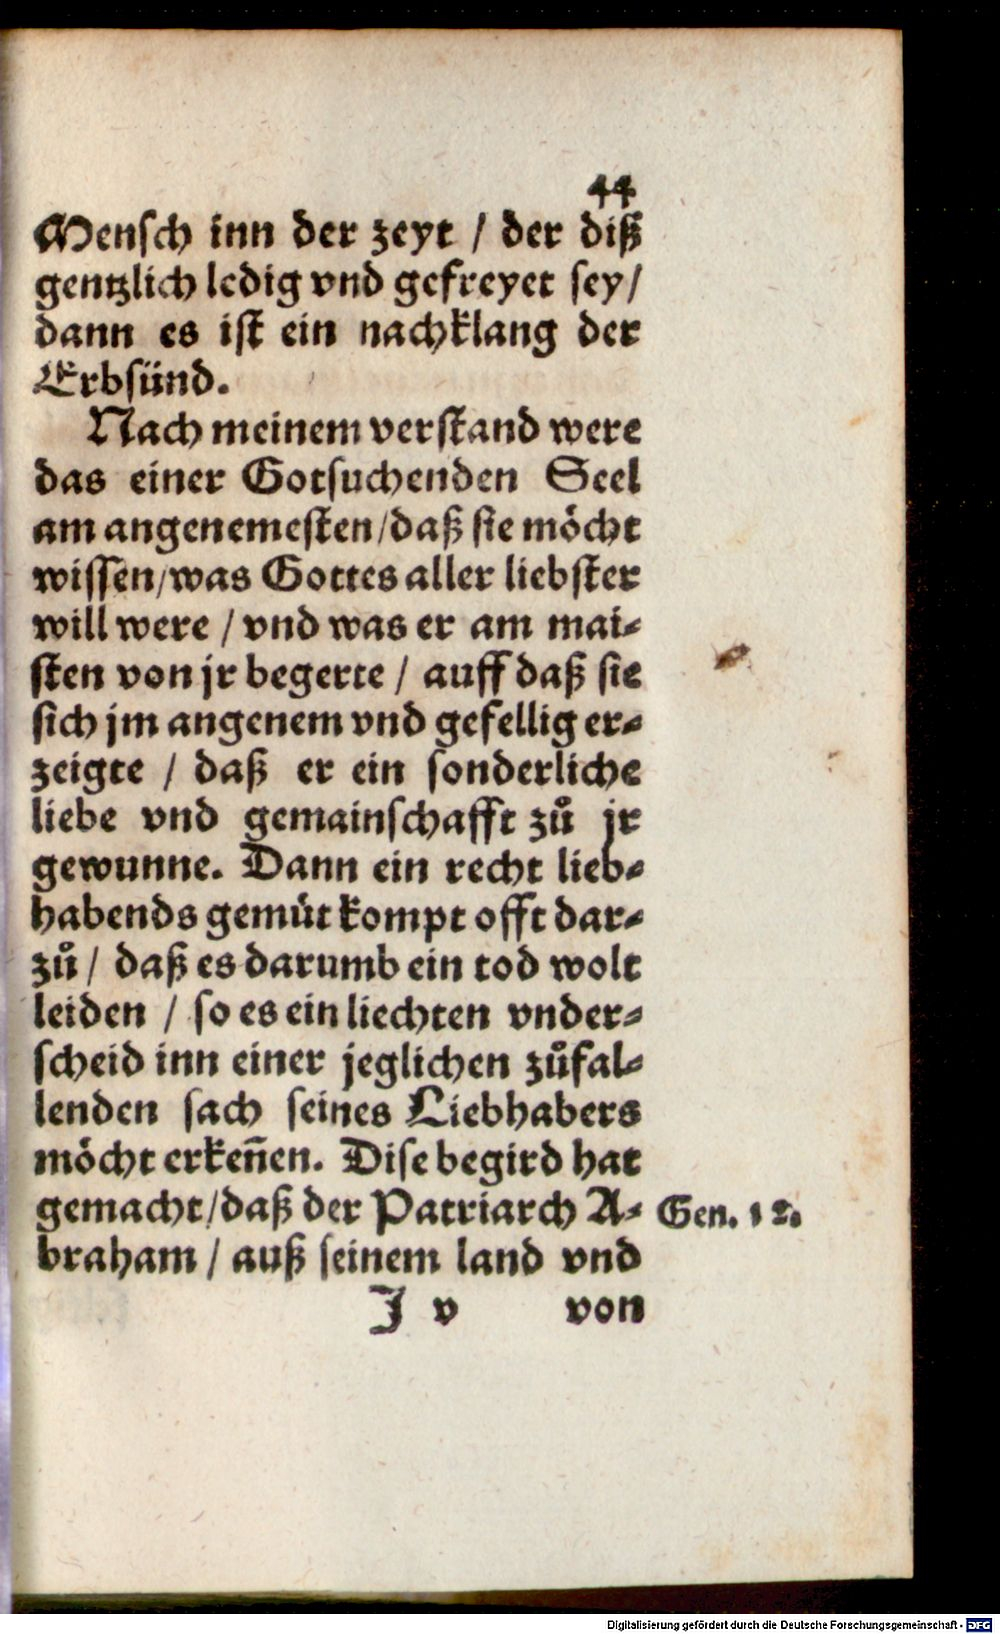 44
Mensch inn der zeyt / der diß
gentzlich ledig vnd gefreyet sey/
dann es ist ein nachklang der
Erbsünd.
Nach meinem verstand were
das einer Gotsuchenden Seel
am angenemesten/daß sie möcht
wissen/was Gottes aller liebster
will were / vnd was er am mai-
sten von jr begerte / auff daß sie
sich jm angenem vnd gefellig er-
zeigte / daß er ein sonderliche
liebe vnd gemainschafft zů jr
gewunne. Dann ein recht lieb-
habends gemüt kompt offt dar-
zů / daß es darumb ein tod wolt
leiden / so es ein liechten vnder-
scheid inn einer jeglichen zůfal-
lenden sach seines Liebhabers
möcht erkeñen. Dise begird hat
gemacht/daß der Patriarch A- Gen. 12.
braham / auß seinem land vnd
J v von
Digitalisierung gefördert durch die Deutsche Forschungsgemeinschaft - DFG